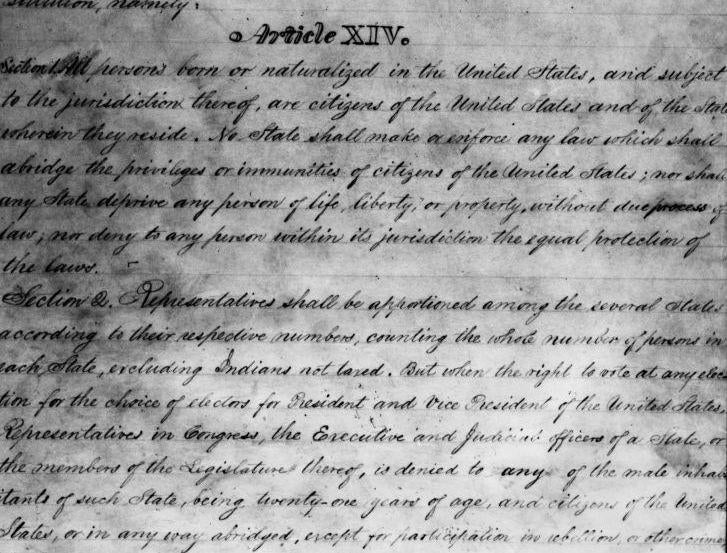 stitution, namely:
Article XIV.
Section 1. All persons born or naturalized in the United States, and subject
to the jurisdiction thereof, are citizens of the United States and of the State
wherein they reside. No State shall make or enforce any law which shall
abridge the privileges or immunities of citizens of the United States; nor shall
any State deprive any person of life, liberty, or property, without due process of
law; nor deny to any person within its jurisdiction the equal protection of
the laws.
Section 2. Representatives shall be apportioned among the several States
according to their respective numbers, counting the whole number of persons in
each State, excluding Indians not taxed. But when the right to vote at any elec-
tion for the choice of electors for President and Vice President of the United States,
Representatives in Congress, the Executive and Judicial officers of a State, or
the members of the Legislature thereof, is denied to any of the male inhab-
itants of such State, being twenty-one years of age, and citizens of the United
States, or in any way abridged, except for participation in rebellion, or other crime,